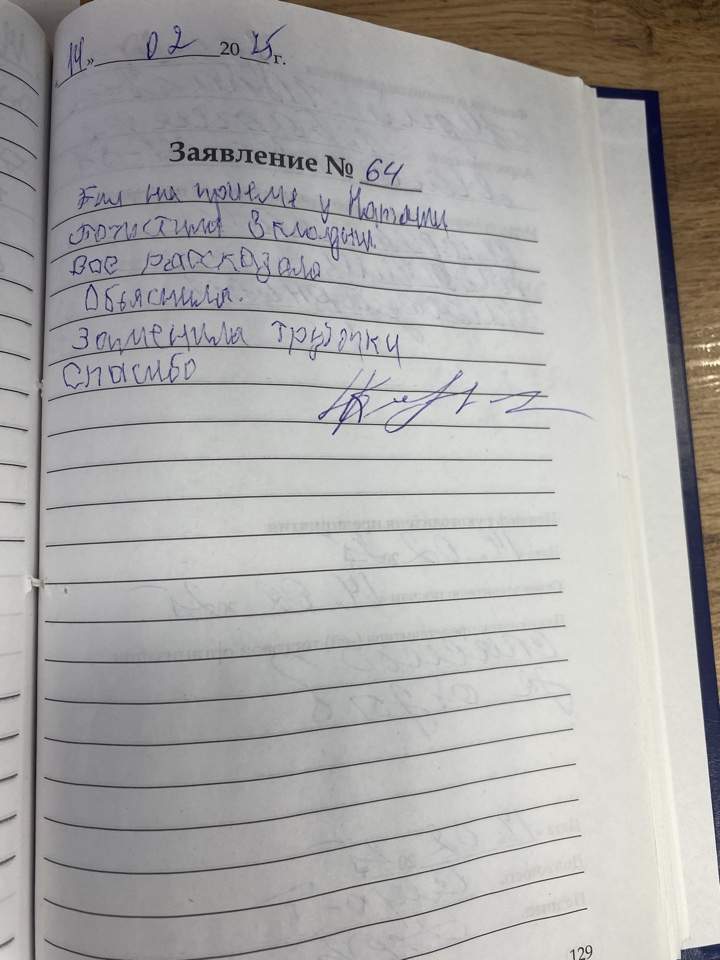 14 » 02 20 25 г.
Заявление № 64
Был на приеме у Наташи
почистила вкладыш.
все рассказала
Обьяснила.
Заменила трубочки
Спасибо
129